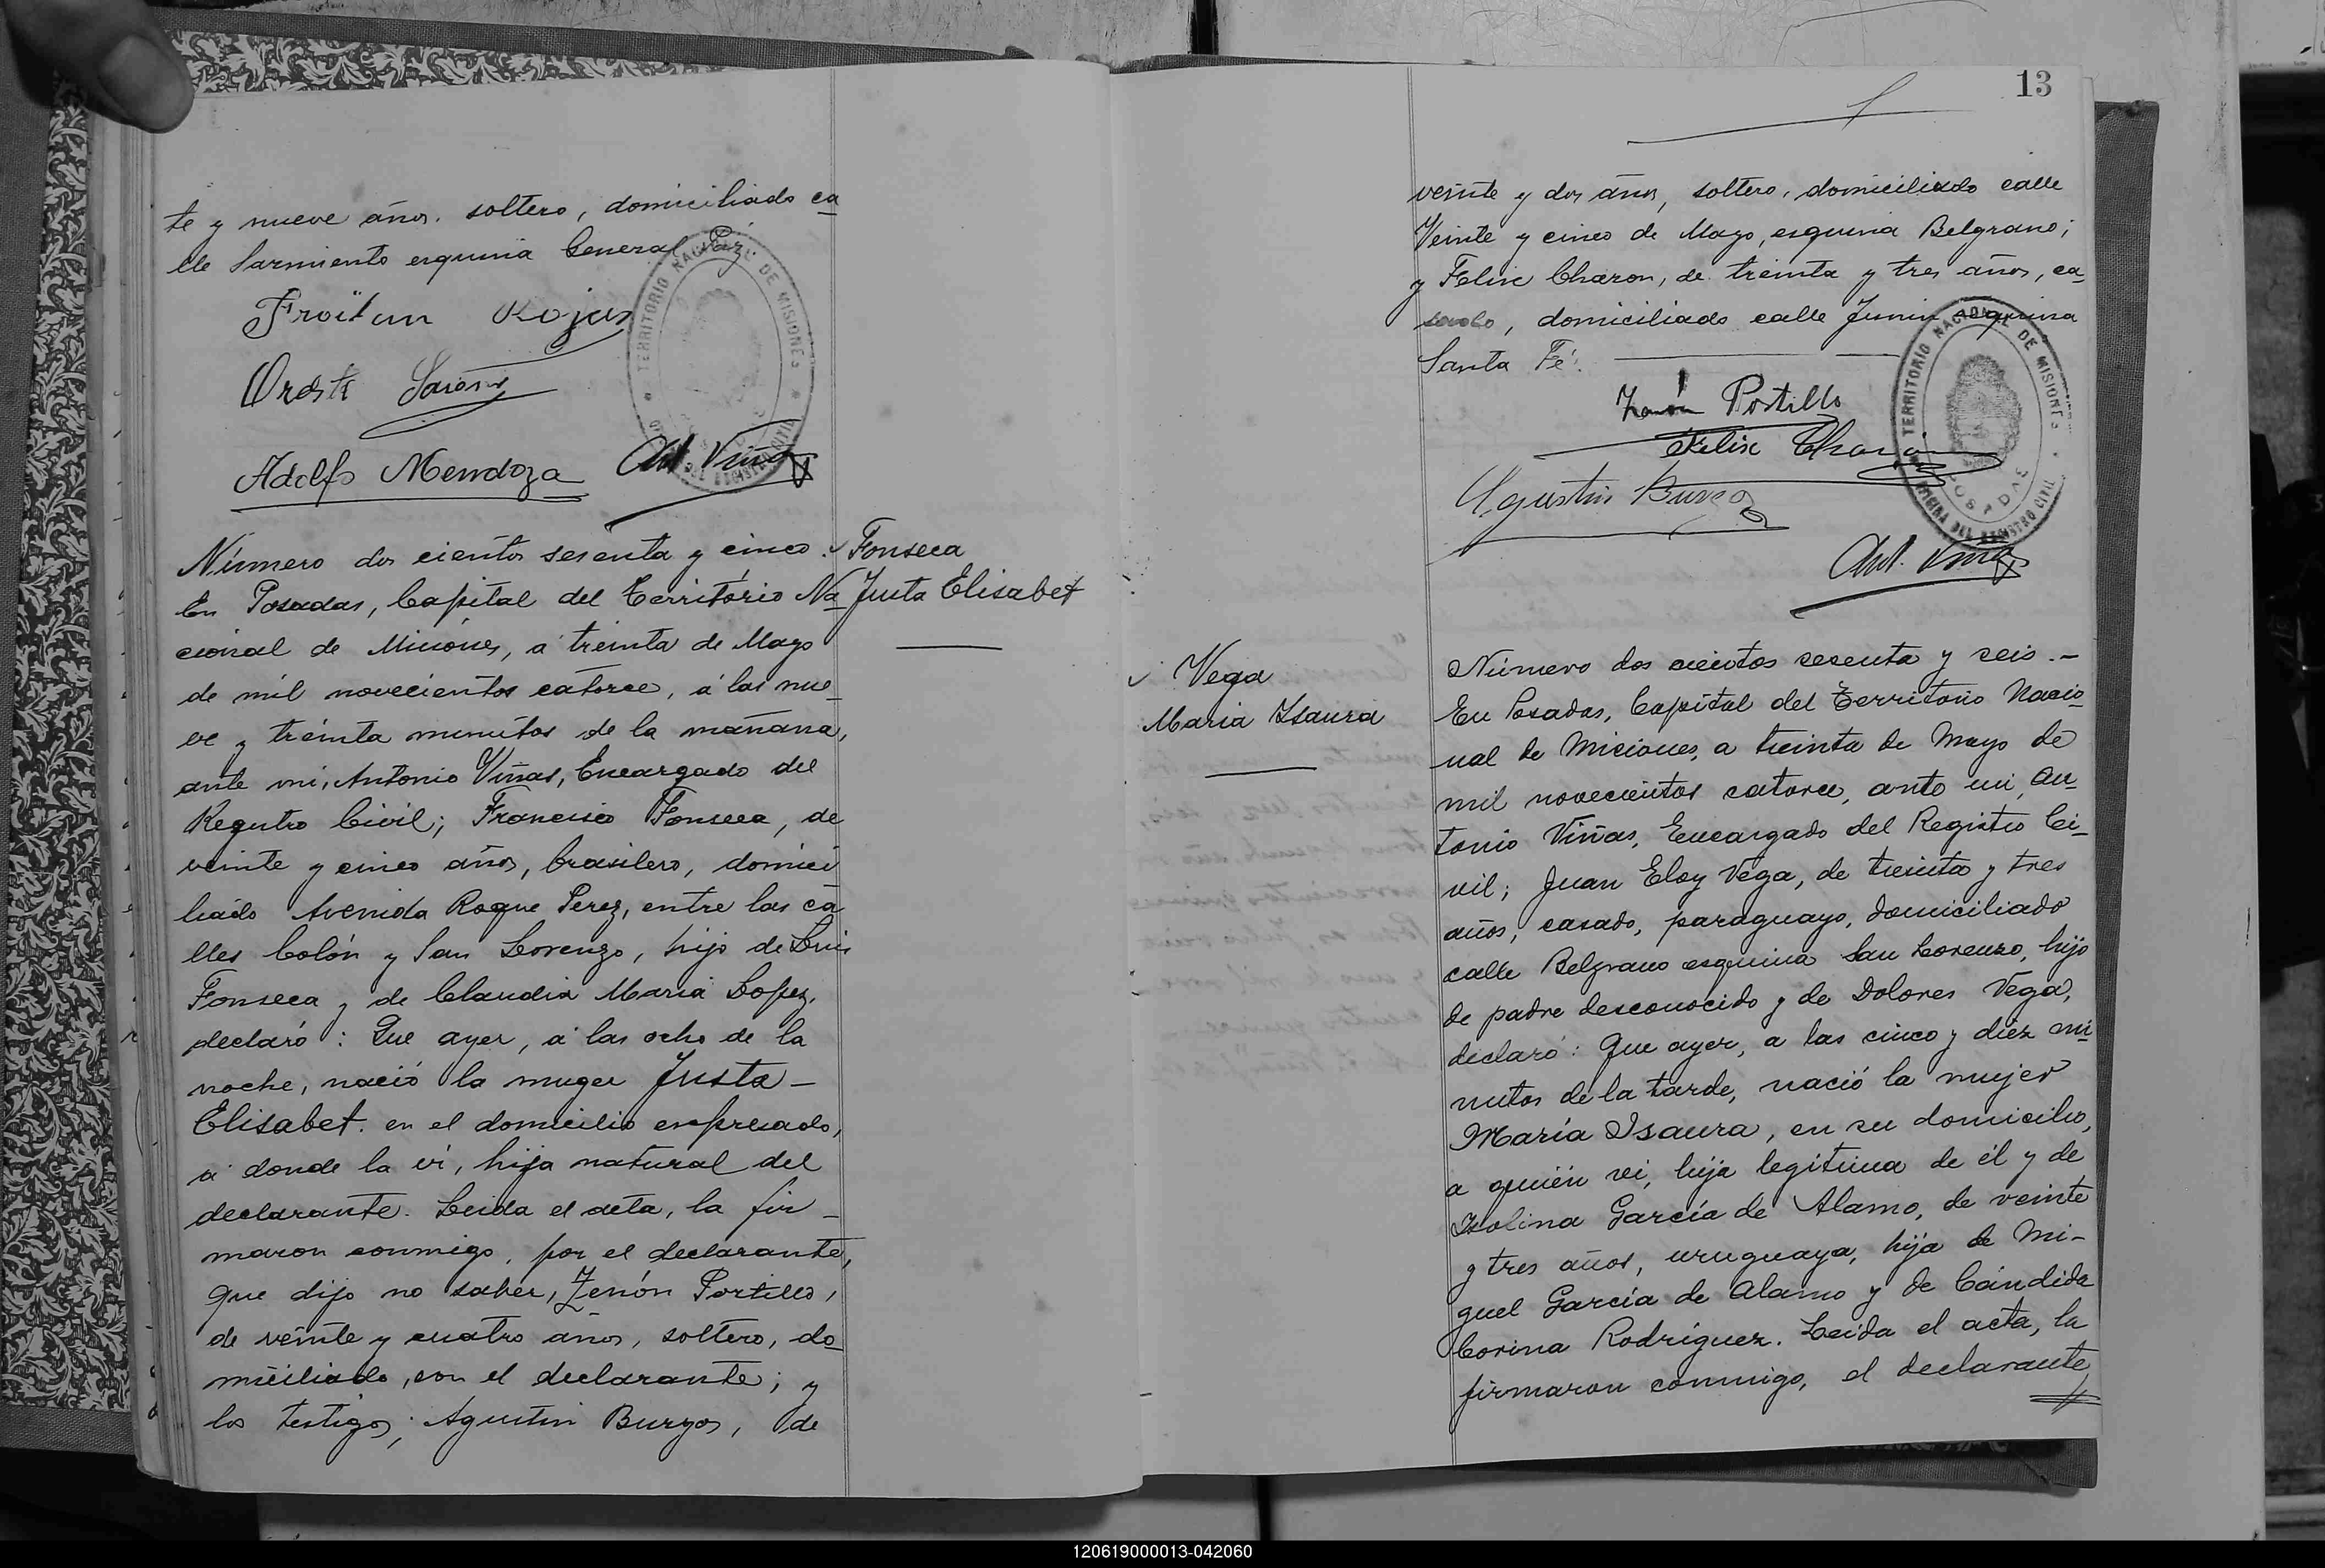 te y nueve años. soltero, domiciliado ca
lle Sarmiento esquina General Paz.
Froilan Rojas
Adolfo Mendoza Ant. Viñas
TERRITORIO NACIONAL DE MISIONES
Número dos cientos sesenta y cinco.
En Posadas, Capital del Territorio Na
cional de Misiones, a treinta de Mayo
de mil novecientos catorce, á las nue_
ve y treinta minutos de la mañana,
ante mi, Antonio Viñas, Encargado del
Registro Civil; Francisco Fonseca, de
veinte y cinco años, brasilero, domici
liado Avenida Roque Perez, entre las ca
lles Colón y San Lorenzo, hijo de Luis
Fonseca y de Claudia Maria Lopez,
declaró: Que ayer, á las ocho de la
noche, nació la muger Justa_
Elisabet. en el domicilio expresado,
á donde la ví, hija natural del
declarante. Leida el acta, la fir_
maron conmigo, por el declarante,
que dijo no saber, Zenón Portillo,
de veinte y cuatro años, soltero, do
miciliado, con el declarante; y
los testigos; Agustin Burgos, de
Fonseca
Justa Elisabet
13
veinte y dos años, soltero, domiciliado calle
Veinte y cinco de Mayo, esquina Belgrano;
y Felix Charon, de treinta y tres años, ca
sado, domiciliado calle Junin esquina
Santa Fé.
Zenón Portillo
Felix Charon
Agustin Burgos
Ant. Viñas
TERRITORIO NACIONAL DE MISIONES
OFICINA DEL REGISTRO CIVIL
POSADAS
Vega
Maria Isaura
Número dos cientos sesenta y seis.-
En Posadas, Capital del Territorio Nacio
nal de Misiones, a treinta de Mayo de
mil novecientos catorce, ante mi, An
tonio Viñas, Encargado del Registro Ci_
vil; Juan Eloy Vega, de treinta y tres
años, casado, paraguayo, domiciliado
calle Belgrano esquina San Lorenzo, hijo
de padre desconocido y de Dolores Vega,
declaró: Que ayer, a las cinco y diez mi
nutos de la tarde, nació la mujer
María Isaura, en su domicilio,
a quién vi, hija legitima de él y de
Isolina García de Alamo, de veinte
y tres años, uruguaya, hija de Mi-
guel García de Alamo y de Cándida
Corina Rodríguez. Leida el acta, la
firmaron conmigo, el declarante,
120619000013-042060